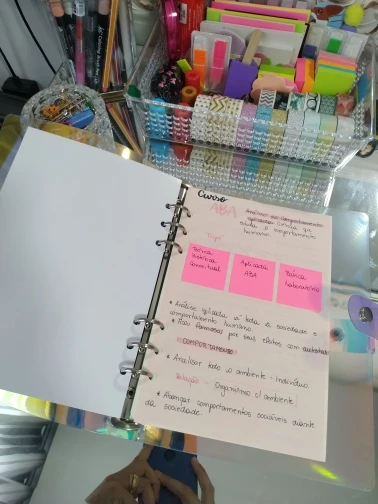 Curso
ABA
Análise do comportamento
aplicada
estuda o comportamento
humano
Tripé
Teórica
histórica
conceitual
Aplicada
ABA
Prática
Laboratório
• Análise aplicada a toda a sociedade e
comportamento humano
• Mais famosas por seus efeitos com autistas
COMPORTAMENTO
• Analisar todo o ambiente - indivíduo
Relação - Organismo c/ ambiente
• Abranger comportamentos sociáveis diante
da sociedade